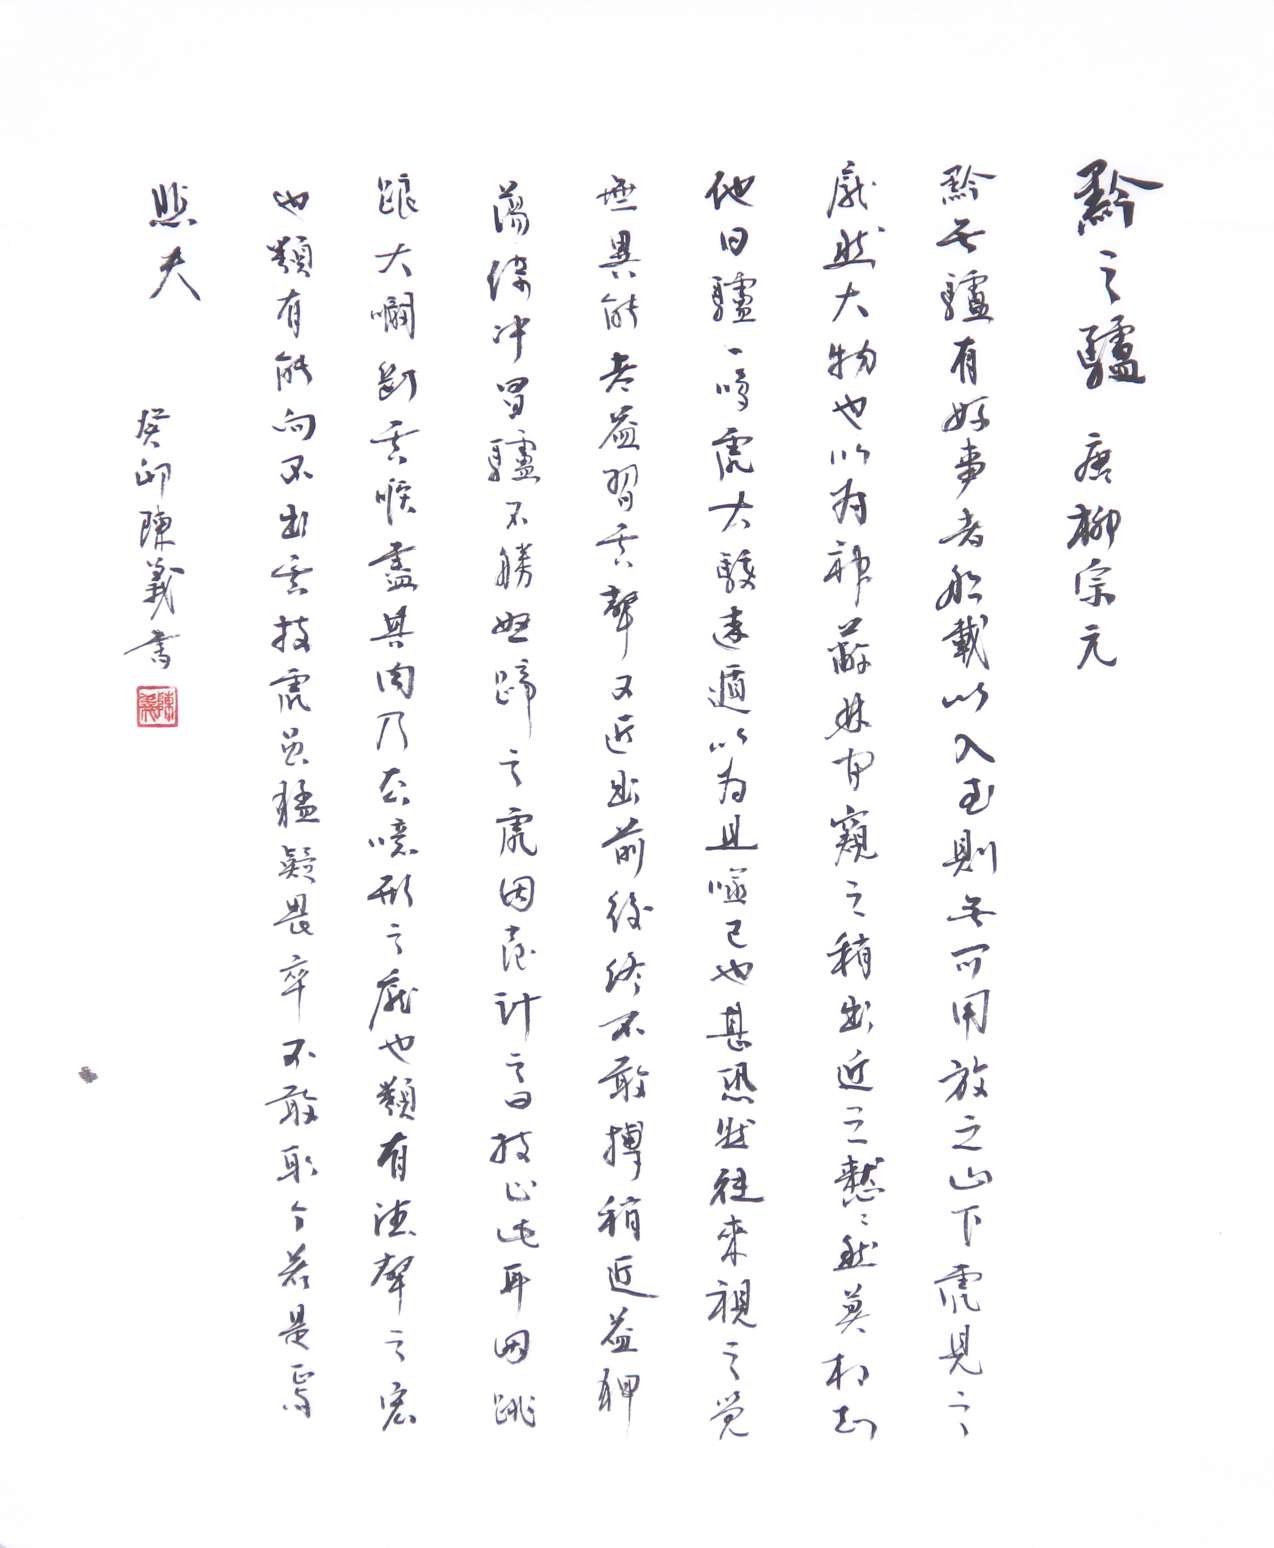 黔之驢 唐柳宗元
黔無驢有好事者船載以入至則無可用放之山下虎見之
龐然大物也以為神蔽林間窺之稍出近之憖憖然莫相知
他日驢一鳴虎大駭遠遁以為且噬己也甚恐然往來視之覺
無異能者益習其聲又近出前後終不敢搏稍近益狎
蕩倚冲冒驢不勝怒蹄之虎因喜計之曰技止此耳因跳
踉大㘎斷其喉盡其肉乃去噫形之龐也類有德聲之宏
也類有能向不出其技虎虽猛疑畏卒不敢取今若是焉
悲夫
癸卯陳義書
陳義